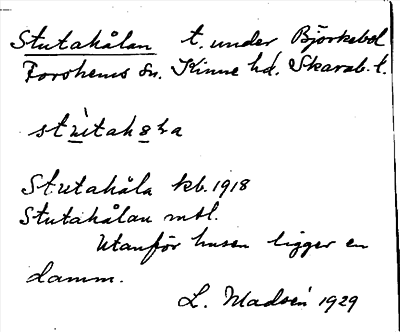 Stutahålan t. under Björkebol
Forshems sn. Kinne hd. Skarab. l.
stùtahola
Stutahåla kb. 1918
Stutahålan mtl.
Utanför husen ligger en
damm.
L. Madsén 1929